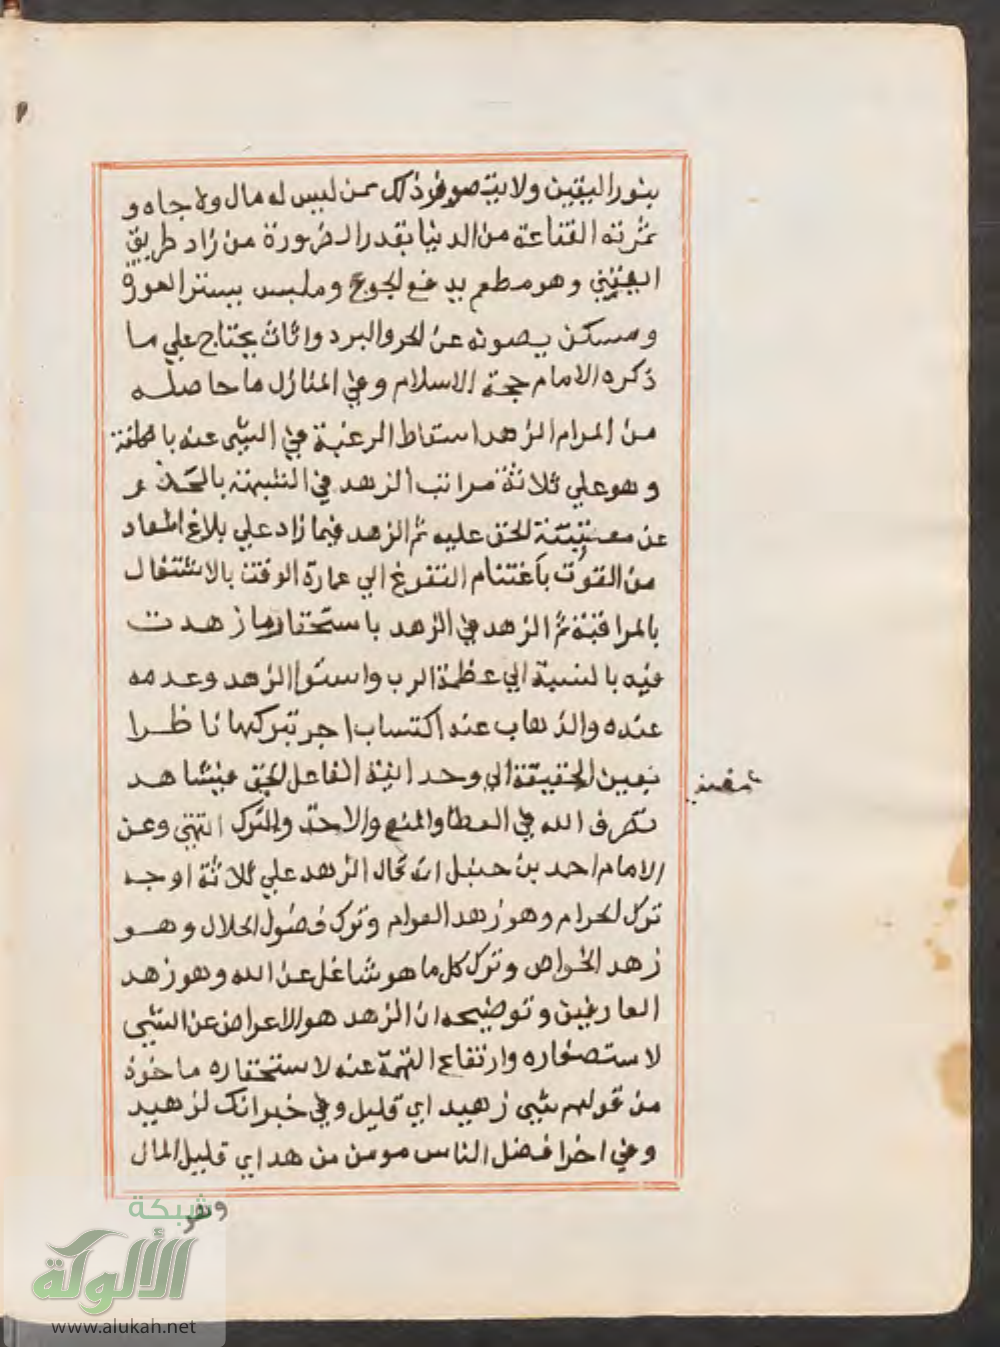 بنور اليقين ولا يتصور ذلك ممن ليس له مال ولا جاه و
ثمرته القناعة من الدنيا بقدر الضرورة من زاد طريق
وهو مطعم يدفع الجوع وملبس يستر العورة
ومسكن يصونه عن الحر والبرد واثاث يحتاج علي ما
ذكره الامام حجة الاسلام وفي المنازل ما حاصله
من المرام الزهد اسقاط الرغبة في الشي عنه بالكلية
وهو علي ثلاثة مراتب الزهد في الشبهة بالحذر
عن معتبة الحق عليه ثم الزهد فيما زاد علي بلاغ المعاد
من القوت باغتنام التفرغ الي عمارة الوقت بالاشتغال
بالمراقبة ثم الزهد في الزهد باستحقار ما زهدت
فيه بالنسبة الي عظمة الرب واستوا الزهد وعدمه
عنده والذهاب عنه اكتساب اجر تبركها ناظرا
بعين الحقيقة الي وحدانية الفاعل الحق فيشاهد
تصرف الله في العطا والمنع والاخذ والترك انتهي وعن
الامام احمد بن حنبل انه قال الزهد علي ثلاثة اوجه
ترك الحرام وهو زهد العوام وترك فضول الحلال وهو
زهد الخواص وترك كل ما هو شاغل عن الله وهو زهد
العارفين وتوضيحه ان الزهد هو الاعراض عن الشي
لاستصغاره وارتفاع الهمة عنه لاستحقاره ماخوذ
من قولهم شي زهيد اي قليل وفي خبر انك لزهيد
وفي اخر افضل الناس مومن مزهد اي قليل المال
شبكة
الألوكة
www.alukah.net